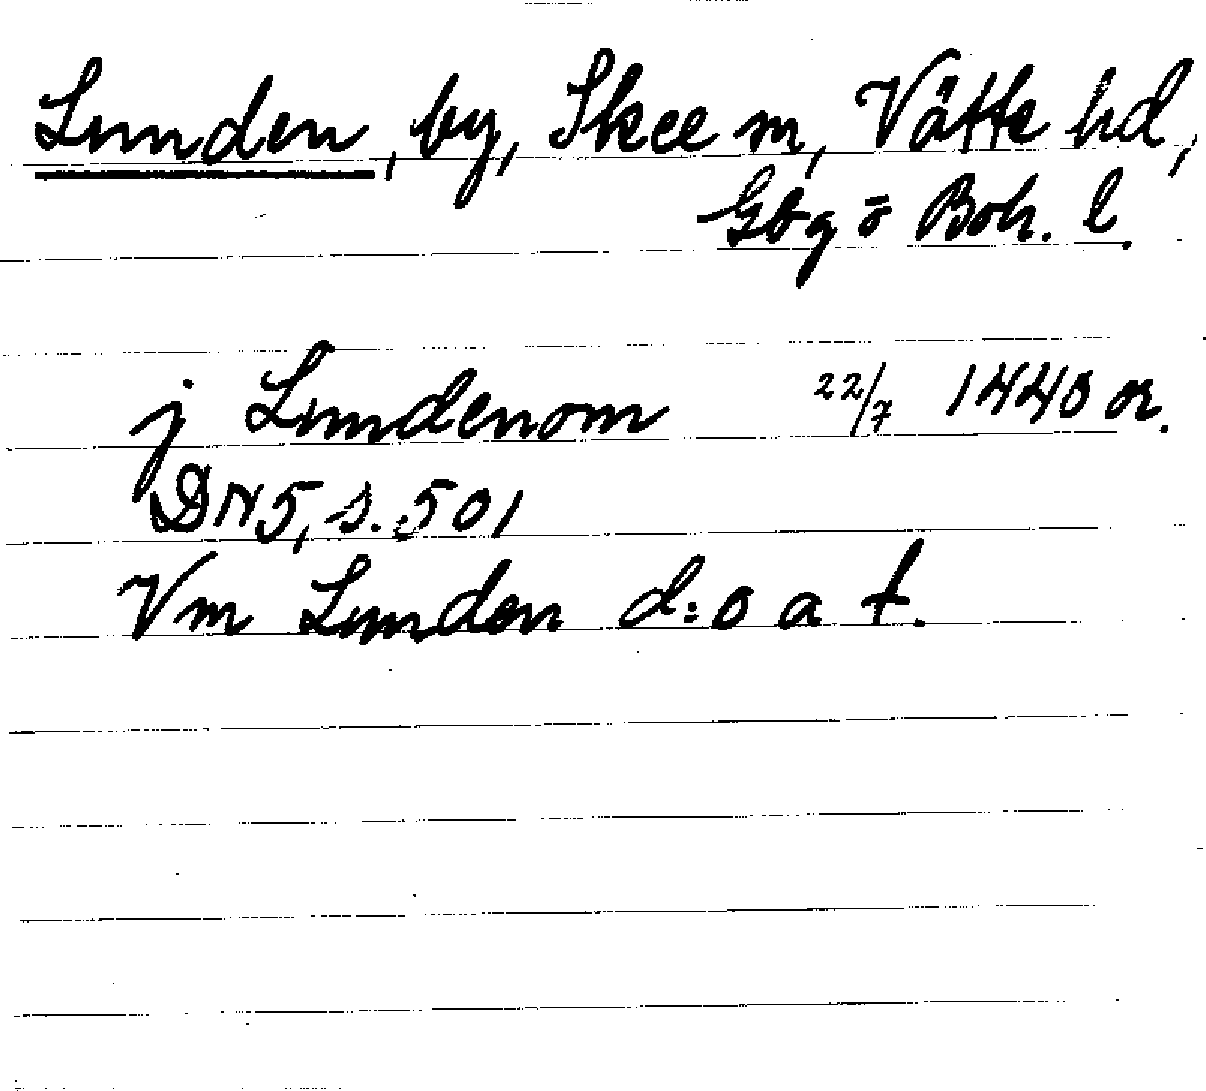 Lunden, by, Skee sn, Vätte hd,
Gbg o Boh. l.
j Lundenom 22/7 1440 or.
DN 5, s. 501
Vm Lunden d:o a t.